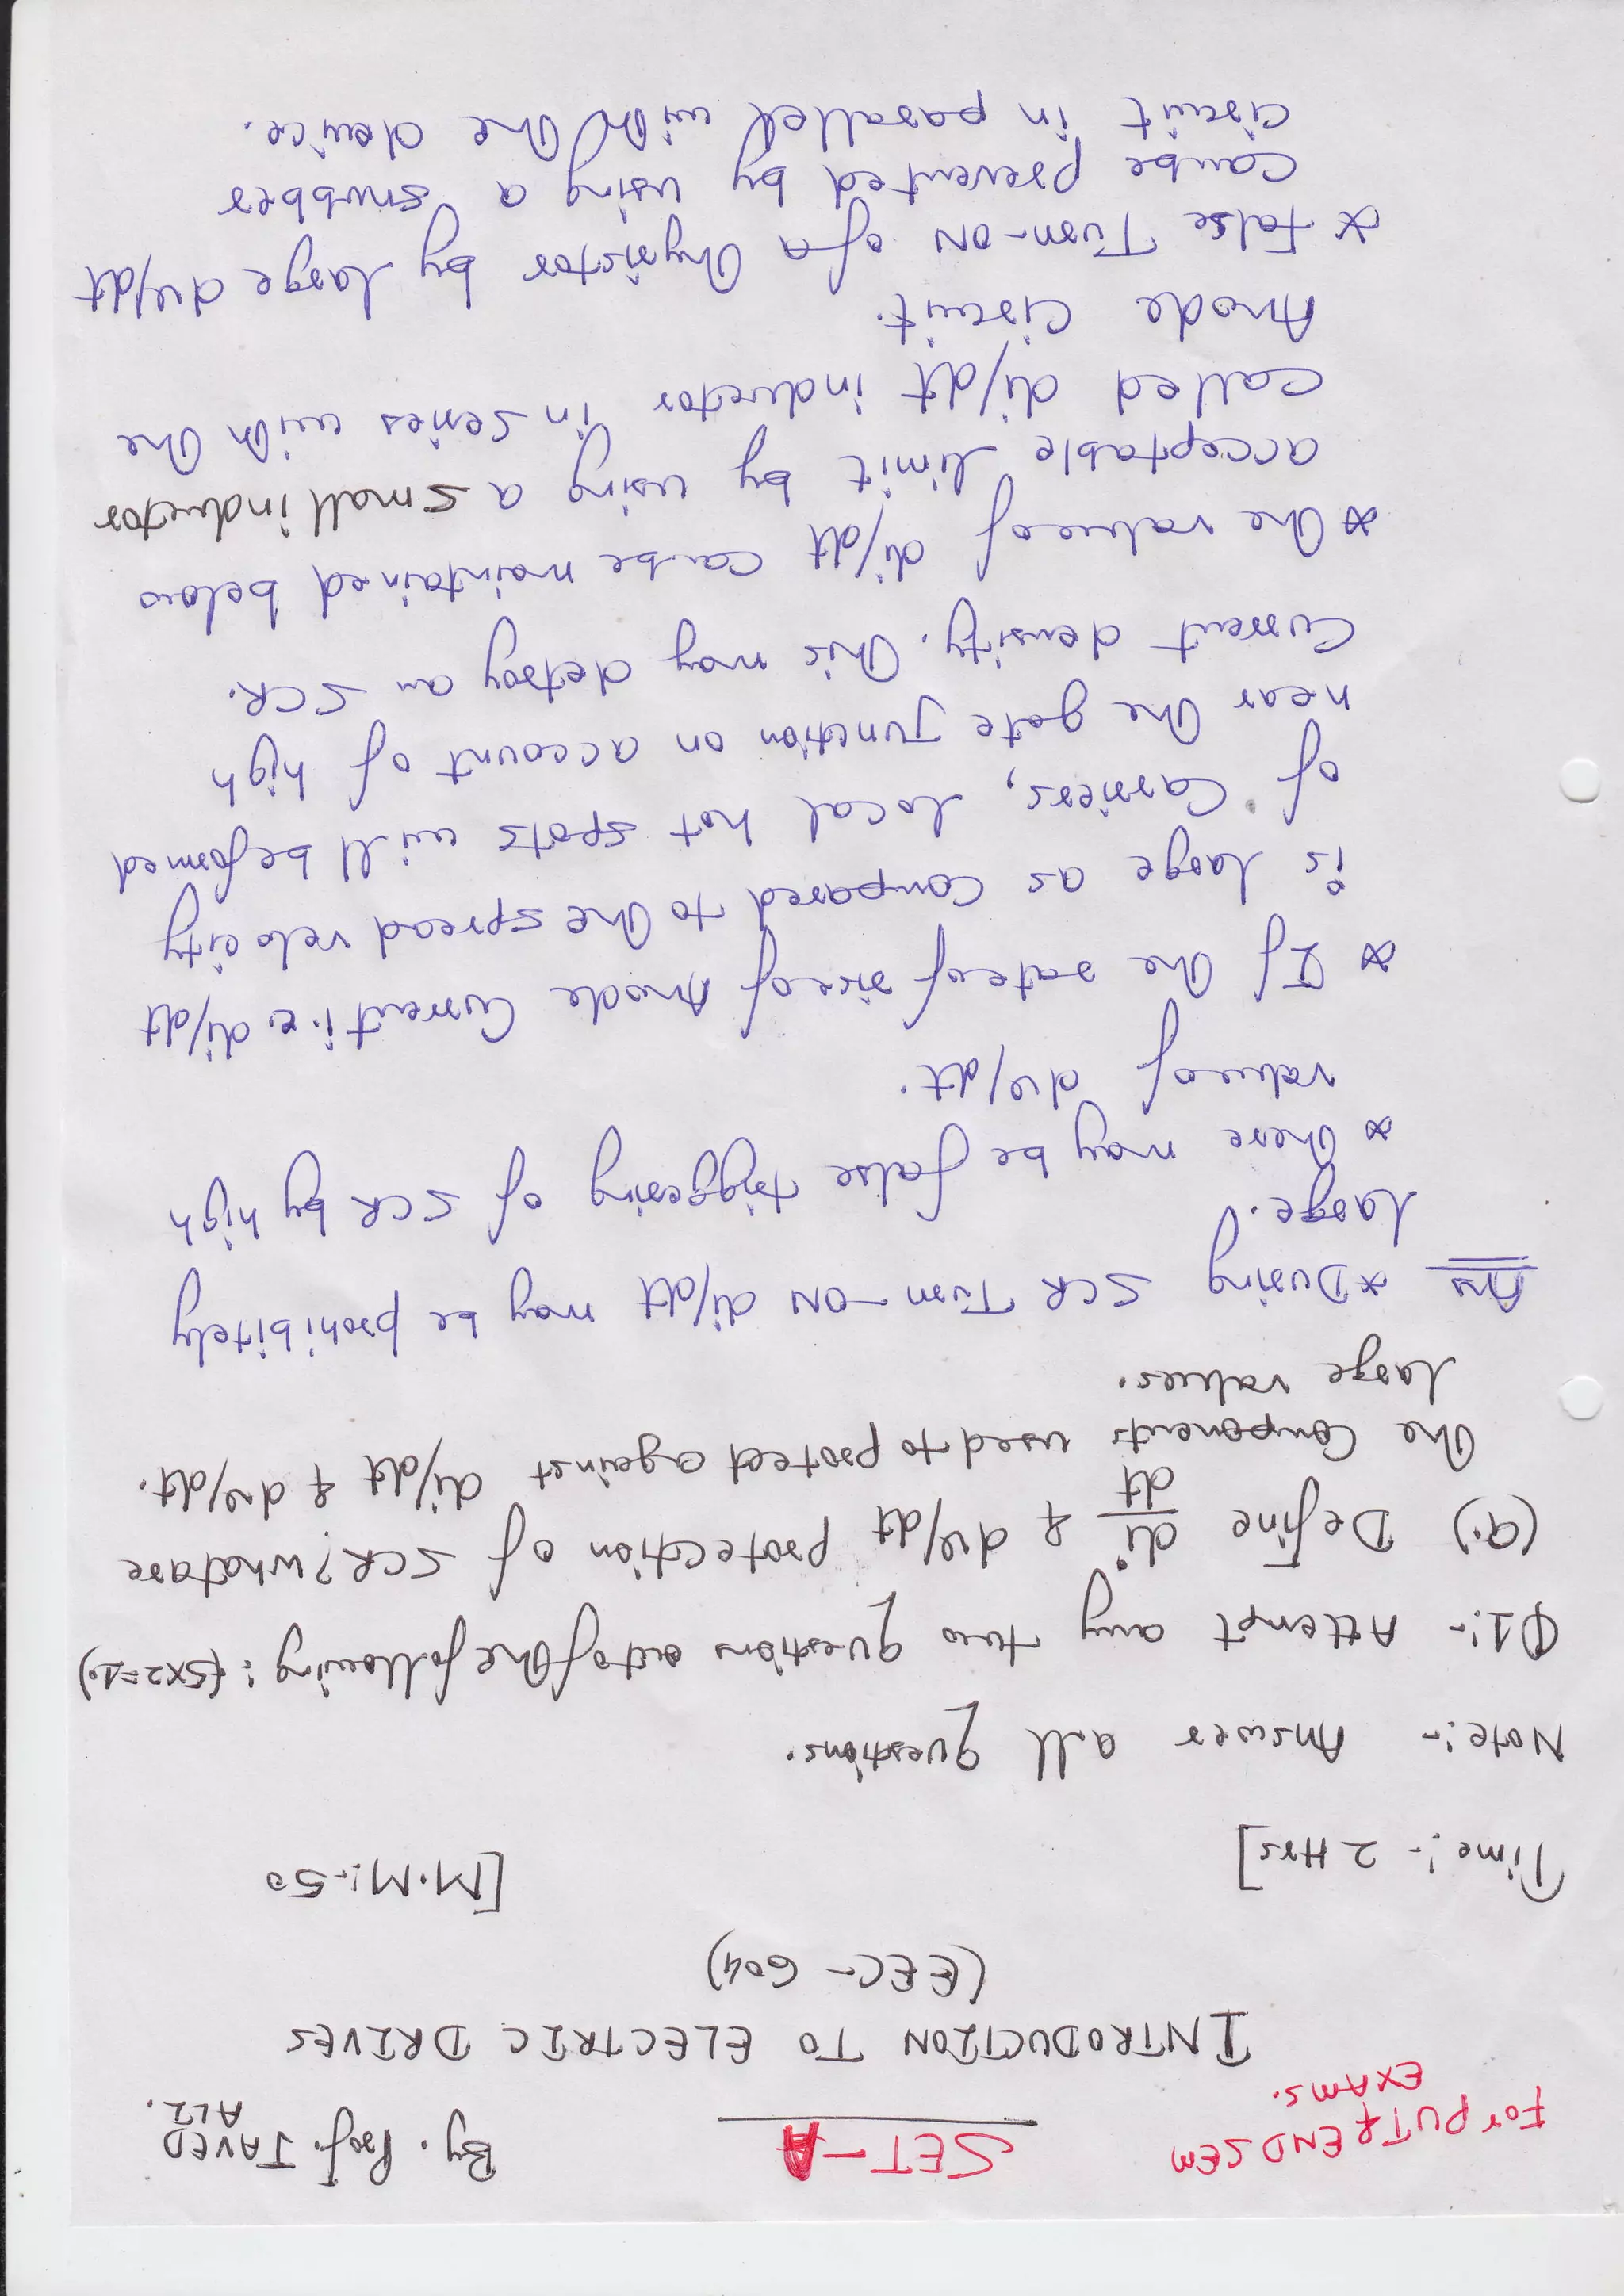 For PUT & END SEM
EXAMS.
SET-A
By. Prof. JAVED
ALI.
INTRODUCTION TO ELECTRIC DRIVES
(EEC-604)
Time:- 2 Hrs] [M.M:-50
Note:- Answer all questions.
Q1:- Attempt any two questions out of the following: (5x2=10)
(a.) Define di/dt & dv/dt protection of SCR? what are
the components used to protect against di/dt & dv/dt.
large values.
Ans *During SCR Turn-ON di/dt may be prohibitely
large.
* There may be false triggering of SCR by high
value of dv/dt.
* If the rate of rise of Anode Current i.e di/dt
is large as compared to the spread velocity
of Carriers, local hot spots will be formed
near the gate Junction on account of high
Current density. This may detroy an SCR.
* The value of di/dt can be maintained below
acceptable limit by using a small inductor
called di/dt inductor in series with the
Anode Circuit.
* False Turn-ON of a thyristor by large dv/dt
can be prevented by using a snubber
circuit in parallel with the device.